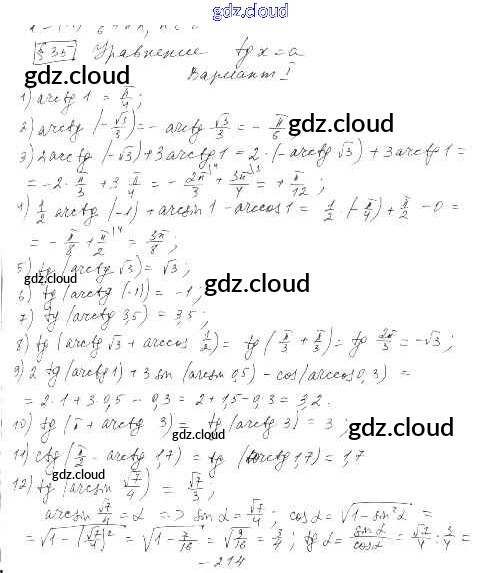 gdz.cloud
§ 35 Уравнение tg x = a
Вариант I
gdz.cloud
1) arctg 1 = π/4;
gdz.cloud
2) arctg (-√3/3) = - arctg √3/3 = - π/6
3) 2arctg (-√3) + 3arctg 1 = 2·(-arctg √3) + 3arctg 1 =
= -2·π/3 + 3·π/4 = -2π/3 + 3π/4 = +π/12;
4) 1/2 arctg (-1) + arcsin 1 - arccos 1 = 1/2·(-π/4) + π/2 - 0 =
= -π/8 + π/2 = 3π/8;
5) tg (arctg √3) = √3;
gdz.cloud
gdz.cloud
6) tg (arctg (-1)) = -1;
7) tg (arctg 3,5) = 3,5;
8) tg (arctg √3 + arccos 1/2) = tg (π/3 + π/3) = tg 2π/3 = -√3;
9) 2 tg (arctg 1) + 3 sin (arcsin 0,5) - cos (arccos 0,3) =
= 2·1 + 3·0,5 - 0,3 = 2 + 1,5 - 0,3 = 3,2.
10) tg (π + arctg 3) = tg (arctg 3) = 3;
gdz.cloud
gdz.cloud
11) ctg (π/2 - arctg 1,7) = tg (arctg 1,7) = 1,7
12) tg (arcsin √7/4) = √7/3;
gdz.cloud
arcsin √7/4 = α => sin α = √7/4; cos α = √(1 - sin²α) =
= √(1 - (√7/4)²) = √(1 - 7/16) = √(9/16) = 3/4; tg α = sin α/cos α = √7/4 : 3/4 =
- 214